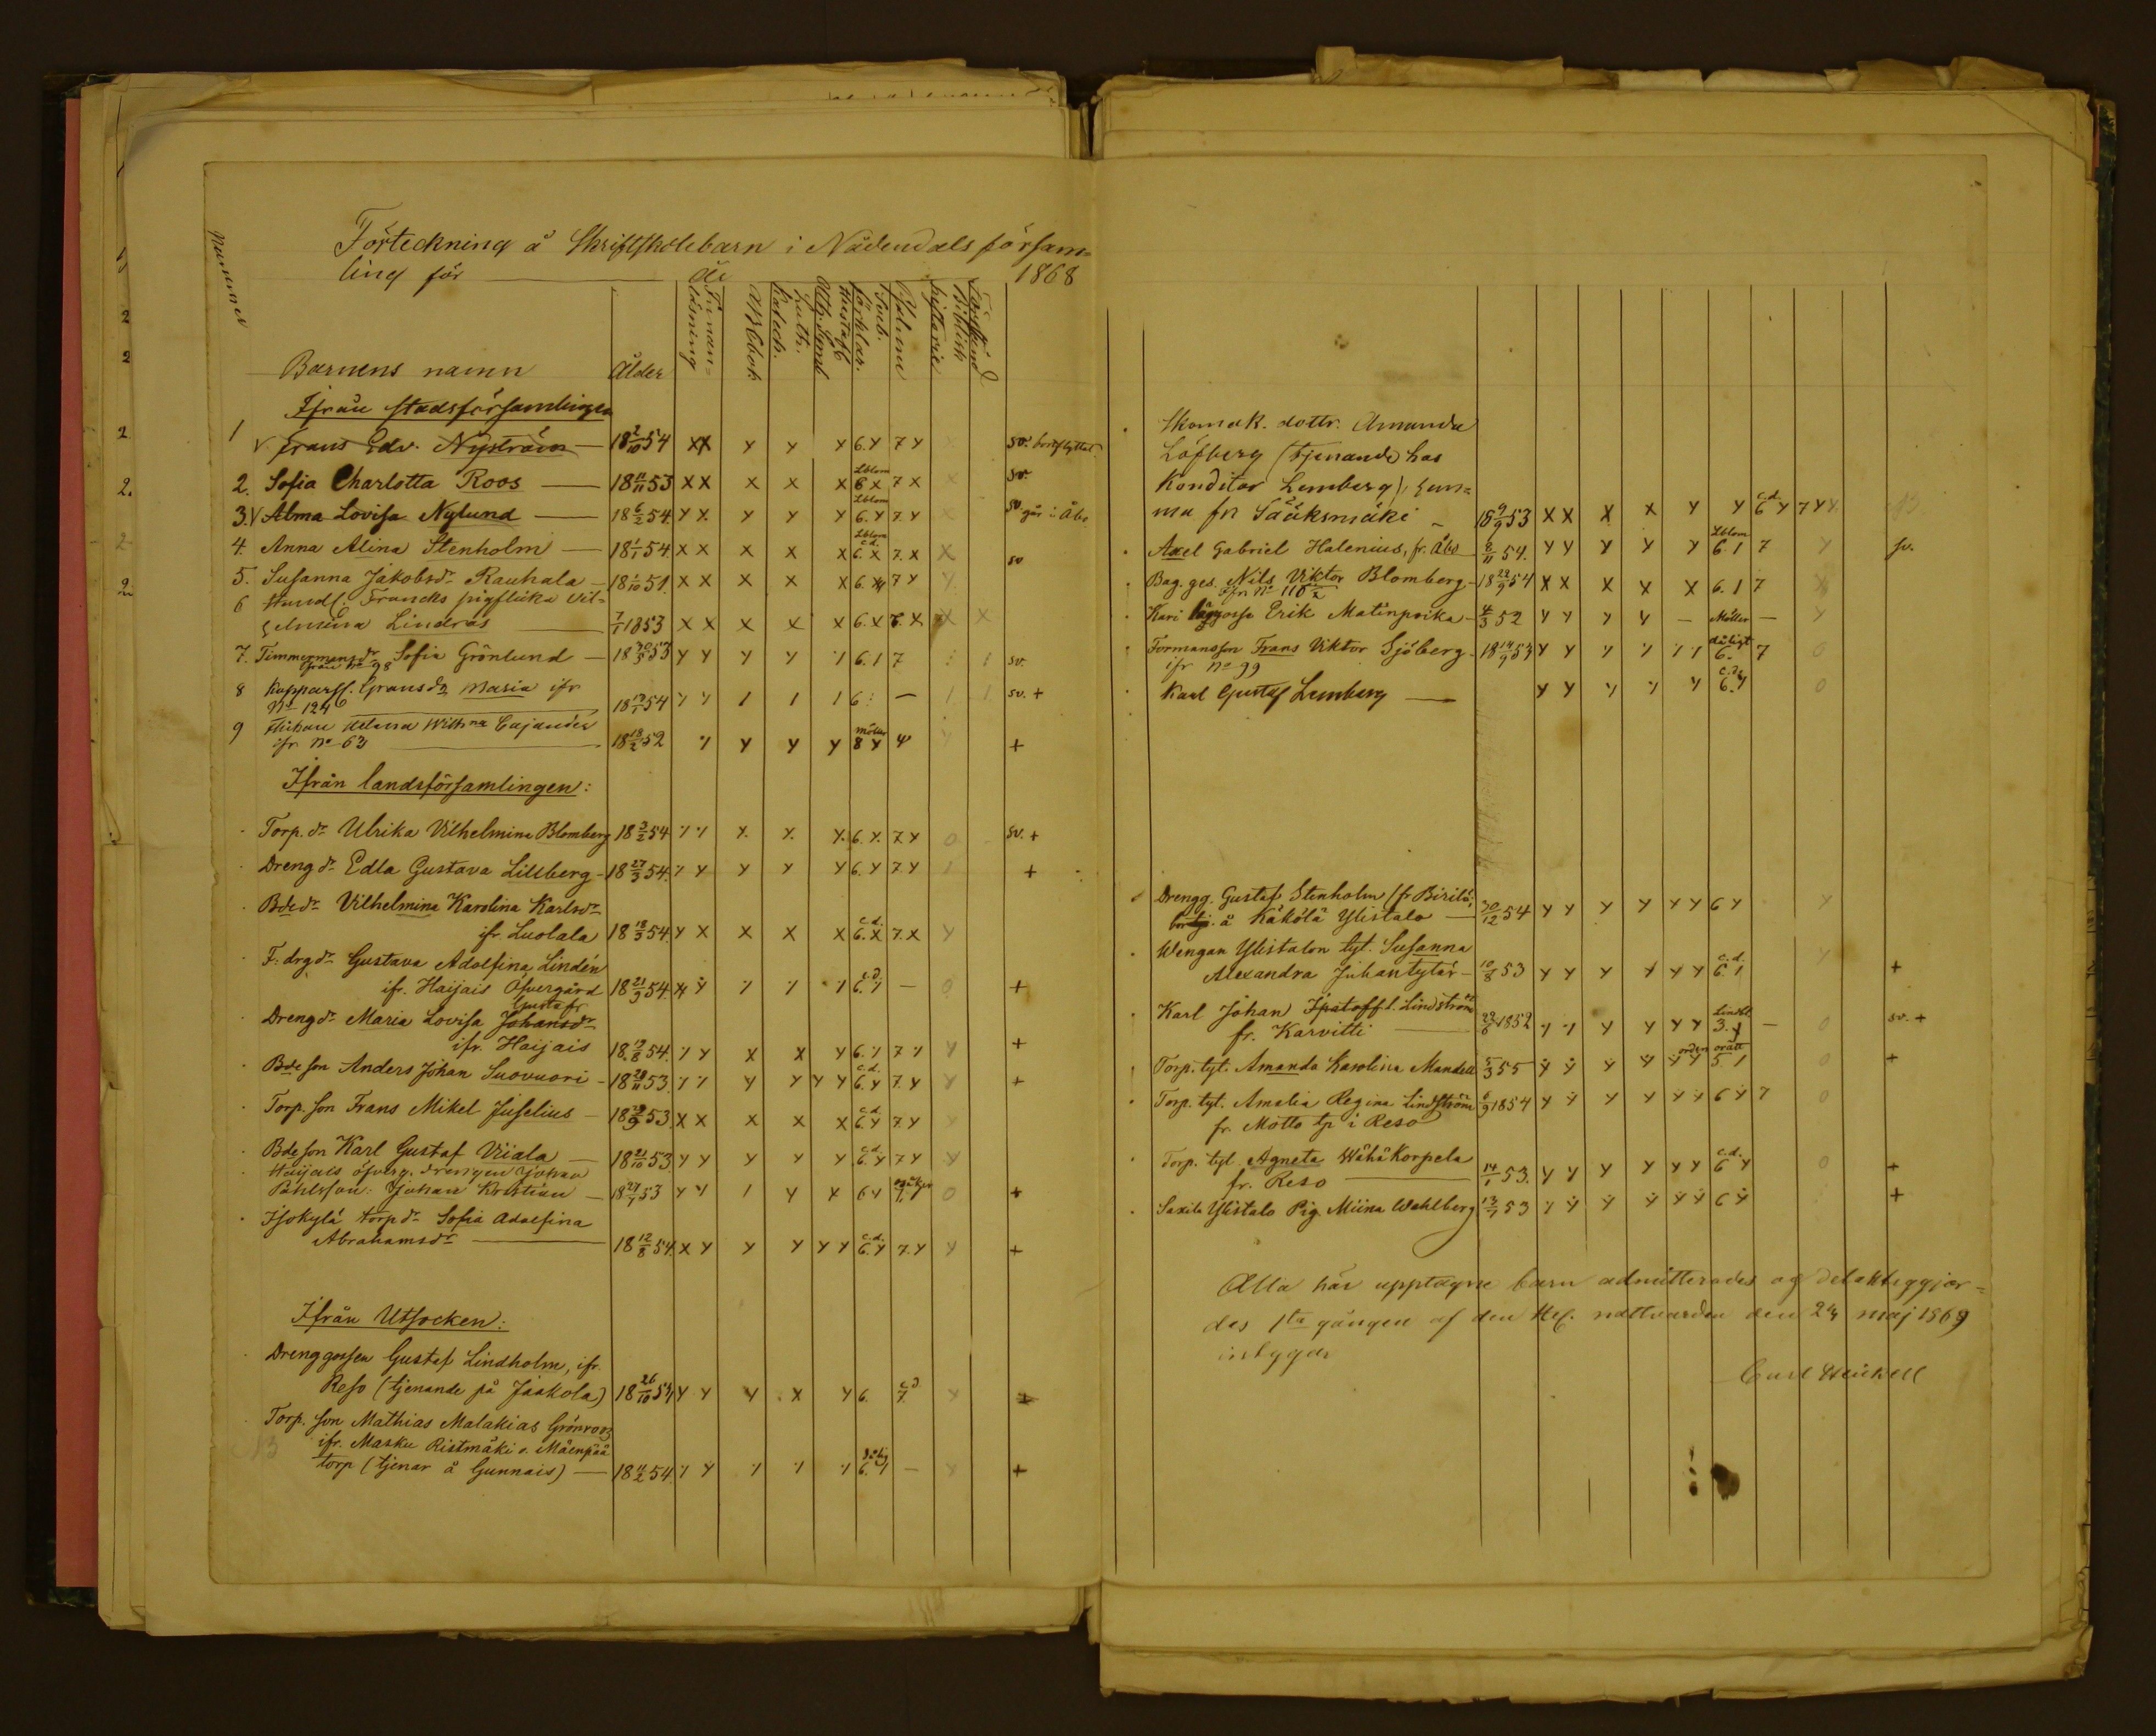 Förteckning å Skriftskolebarn i Nådendals försam=
ling för år 1868
Nummer
Barnens namn
Ålder
Innan=
läsning
ABCbok
Luth.
Katech.
Ath. Symb
Hustafl
Sveb.
förklar.
Psalmer
Biblisk
historie
Förstånd
Ifrån stadsförsamlingen
1 v Frans Edv. Nyström — 18 2/10 54 xx y y y 6. y 7 y sv. bortflyttat.
2. Sofia Charlotta Roos — 18 11/11 53 x x x x x Lblom 6 x 7 x sv.
3. v Alma Lovisa Nylund — 18 6/2 54. y x y y y Lblom 6. y 7. y sv går i Åbo
4. Anna Alina Stenholm — 18 1/1 54. x x x x x Lblom c.d. 6. x 7. x x sv
5. Susanna Jakobsdr Rauhala — 18 1/10 51. x x x x x 6. x 7 y y
6 Handl. Francks pigflicka Vil=
helmina Lindros — 7/1 1853 x x x x x 6. x 7. x x x
7. Timmermansdr Sofia Grönlund — 18 30/3 53 y y y y 1 6. 1 7 sv.
ifrån No 98
8 Kopparsl. Gransdr Maria ifr
No 124 18 19/1 54 1 1 1 6 — 1 1 sv. +
9 Flickan Helena Wilhna Cajander
ifr No 63 — 18 18/2 52 y y y möller 8 y +
Ifrån landsförsamlingen:
Torp. dr Ulrika Vilhelmina Blomberg 18 3/2 54 x. x. x. 6. x. 7. x 0 sv. +
Drengdr Edla Gustava Lillberg — 18 27/3 54. y y y y 6. y 7. y 1 +
Bdedr Vilhelmina Karolina Karlsdr
ifr. Luolala 18 18/3 54. y x x x x c.d. 6. x 7. x y
F: drgdr Gustava Adolfina Lindén
ifr. Haijais Öfvergård 18 21/9 54. c.d. 6. — 0 +
Gustafs
Drengdr Maria Lovisa Johansdr
ifr. Haijais 18 19/8 54. y x x y 6. 7 y +
Bde son Anders Johan Suovuori — 18 28/11 53. y y y y c.d. 6. y 7. y y +
Torp. son Frans Mikel Juselius — 18 29/9 53. x x x x x c.d. 6. y 7. y +
Bde son Karl Gustaf Viiala — 18 21/10 53. y y y y y c.d. 6. y 7 y y
Haijais öfverg. drengen Johan
Påhlsson: Johan Kristian — 18 27/7 53 y y 1 y x 6 y 0 +
Isokylä torpdr Sofia Adolfina
Abrahamsdr — 18 12/8 54. x y y y y y c.d. 6. y 7. y y +
Ifrån Utsocken:
Drenggossen Gustaf Lindholm, ifr.
Reso (tjenande på Jaakola) 18 26/10 54 y y y x y 6. c.d. 7. +
Torp. son Mathias Malakias Grönroos
ifr. Masku Ristmäki o. Mäenpää
torp (tjenar å Gunnais) — 18 11/2 54. 6. — +
Skomak. dottr. Amanda
Löfberg (tjenande hos
Konditor Lemberg),
fr Sääksmäki — 18 9/9 53 x x x x y y c.d. 6 y 7 y
Axel Gabriel Halenius, fr. Åbo 2/11 54. y y y y y Lblom 6. 1 7 y sv.
Bag. ges. Nils Viktor Blomberg — 18 22/9 54 x x x x x 6. 1 7
ifr No 116
Erik Matinpoika — 4/3 52 y y y y — Möller — y
Formansson Frans Viktor Sjöberg 18 14/9 54 y y dåligt 6. 7 0
ifr No 99
Karl Gustaf Lemberg — y y y c.d. 6. y 0
Drengg. Gustaf Stenholm (fr Birilö,
å Käkölä Ylistalo — 30/12 54 y y y y y y 6 y y
Wengan Ylistalon tyt. Susanna
Alexandra Juhantytär — 10/8 53 y y y y y y c.d. 6 1 +
Karl Johan Ipatoff l. Lindström
fr. Karvitti — 22/6 1852 y y y y 3. y — 0 sv. +
Torp. tyt. Amanda Karolina Mandell 5/3 55 y y y y y y orden orätt 5. 1 0 +
Torp. tyt. Amalia Regina Lindström 6/9 1854 y y y y y y 6 y 7 0
fr. Motto tp i Reso
Torp. tyt Agneta Wähäkorpela
fr. Reso — 14/1 53. y y y y y y c.d. 6 y 0 +
Saxila Ylistalo Pig. Miina Wahlberg 13/7 53 y y y y y y 6 y +
Alla här upptagne barn admitterades og delaktiggjor=
des 1sta gången af den Hel. nattvarden den 24 maj 1869
intygar
Carl Heikell